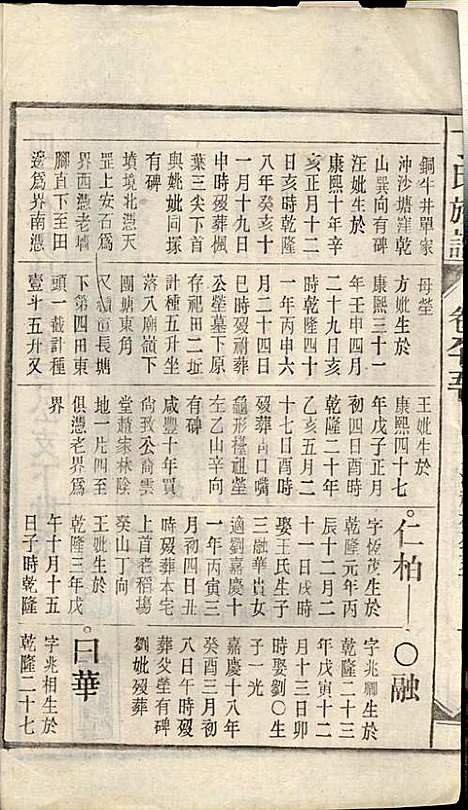 銅牛井單家
沖沙塘窪乾
山巽向有碑
汪妣生於
康熙十年辛
亥正月十二
日亥時乾隆
八年癸亥十
一月十九日
申時歿葬楓
葉三尖下首
與姚妣同塚
有碑
墳境北憑天
罡上安石為
界西憑老墻
腳直下至田
邊為界南憑
母塋
方妣生於
康熙三十一
年壬申四月
二十九日亥
時乾隆四十
一年丙申六
月二十四日
巳時歿祔葬
公塋墓下原
存祀田二坵
計種五升坐
落八廟嶺下
團塘東角
又續置長塘
下第四田東
頭一截計種
壹斗五升又
王妣生於
康熙四十七
年戊子正月
初四日酉時
乾隆二十年
乙亥五月二
十七日酉時
歿葬尚口嘴
龜形樓祖塋
左乙山辛向
有碑
咸豐十年買
尚致公裔雲
堂趙宋林陰
地一片四至
俱憑老界為
界
仁柏
字恆茂生於
乾隆元年丙
辰十二月二
十一日戌時
娶王氏生子
三融華貴女
適劉嘉慶十
一年丙寅三
月初四日丑
時歿葬本宅
上首老稻場
癸山丁向
王妣生於
乾隆三年戊
午十月十五
日子時乾隆
〇融
字兆卿生於
乾隆二十三
年戊寅十二
月十三日卯
時娶劉〇生
子一光
嘉慶十八年
癸酉三月初
八日午時歿
葬父塋有碑
劉妣歿葬
口華
字兆相生於
乾隆二十七